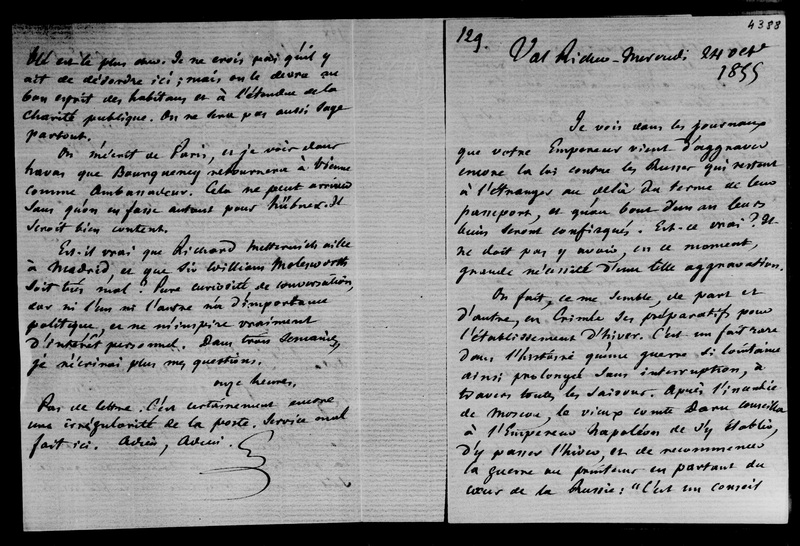 est le plus cher. Je ne crois pas qu'il y
ait de désordre ici ; mais on le devra au
bon esprit des habitans et à l'étendue de la
charité publique. On ne sera pas aussi sage
partout.
On m'écrit de Paris, et je vois dans
havas que Bourqueney retournera à Vienne
comme Ambassadeur. Cela ne peut arriver
sans qu'on en fasse autant pour Hübner. Il
seroit bien content.
Est-il vrai que Richard Metternich aille
à Madrid, et que Sir William Molesworth
soit très mal ? Pure curiosité de conversation,
car ni l'un ni l'autre n'a d'importance
politique, et ne m'inspire vraiment
d'intérêt personnel. Dans trois semaines,
je n'écrirai plus mes questions.
onze heures.
Pas de lettre. C'est certainement encore
une irrégularité de la poste. Service mal
fait ici. Adieu, Adieu.
4388
129.
Val Richer - Mercredi 24 Oct.
1855
Je vois dans les journaux
que votre Empereur vient d'aggraver
encore la loi contre les Russes qui restent
à l'étranger au delà du terme de leur
passeport, et qu'au bout d'un an leurs
biens seront confisqués. Est-ce vrai ? Il
ne doit pas y avoir, en ce moment,
grande nécessité d'une telle aggravation.
On fait, ce me semble, de part et
d'autre, en Crimée des préparatifs pour
l'établissement d'hiver. C'est un fait rare
dans l'histoire qu'une guerre si lointaine
ainsi prolongée sans interruption, à
travers toutes les saisons. Après l'incendie
de Moscou, le vieux comte Daru conseilla
à l'Empereur Napoléon de s'y établir,
d'y passer l'hiver, et de recommencer
la guerre au printems en partant du
cœur de la Russie : "C'est un conseil